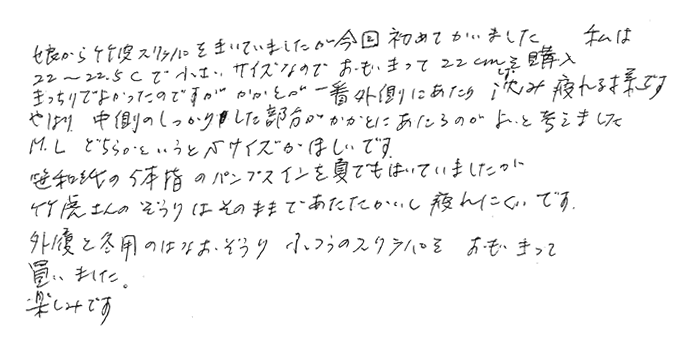 娘から竹皮スリッパをきいていましたが今回初めてかいました 私は
22～22.5Cで小さいサイズなのでおもいきって22cmを購入
きっちりでよかったのですがかかとが一番外側にあたり沈み疲れる様です
やはり中側のしっかりした部分がかかとにあたるのがよいと考えました
M.L どちらかというとSサイズがほしいです
笹和紙の5本指のパンプスインを夏でもはいていましたが
竹虎さんのぞうりはそのままであたたかいし疲れにくいです.
外履と冬用のはなおぞうり ふつうのスリッパを おもいきって
買いました。
楽しみです